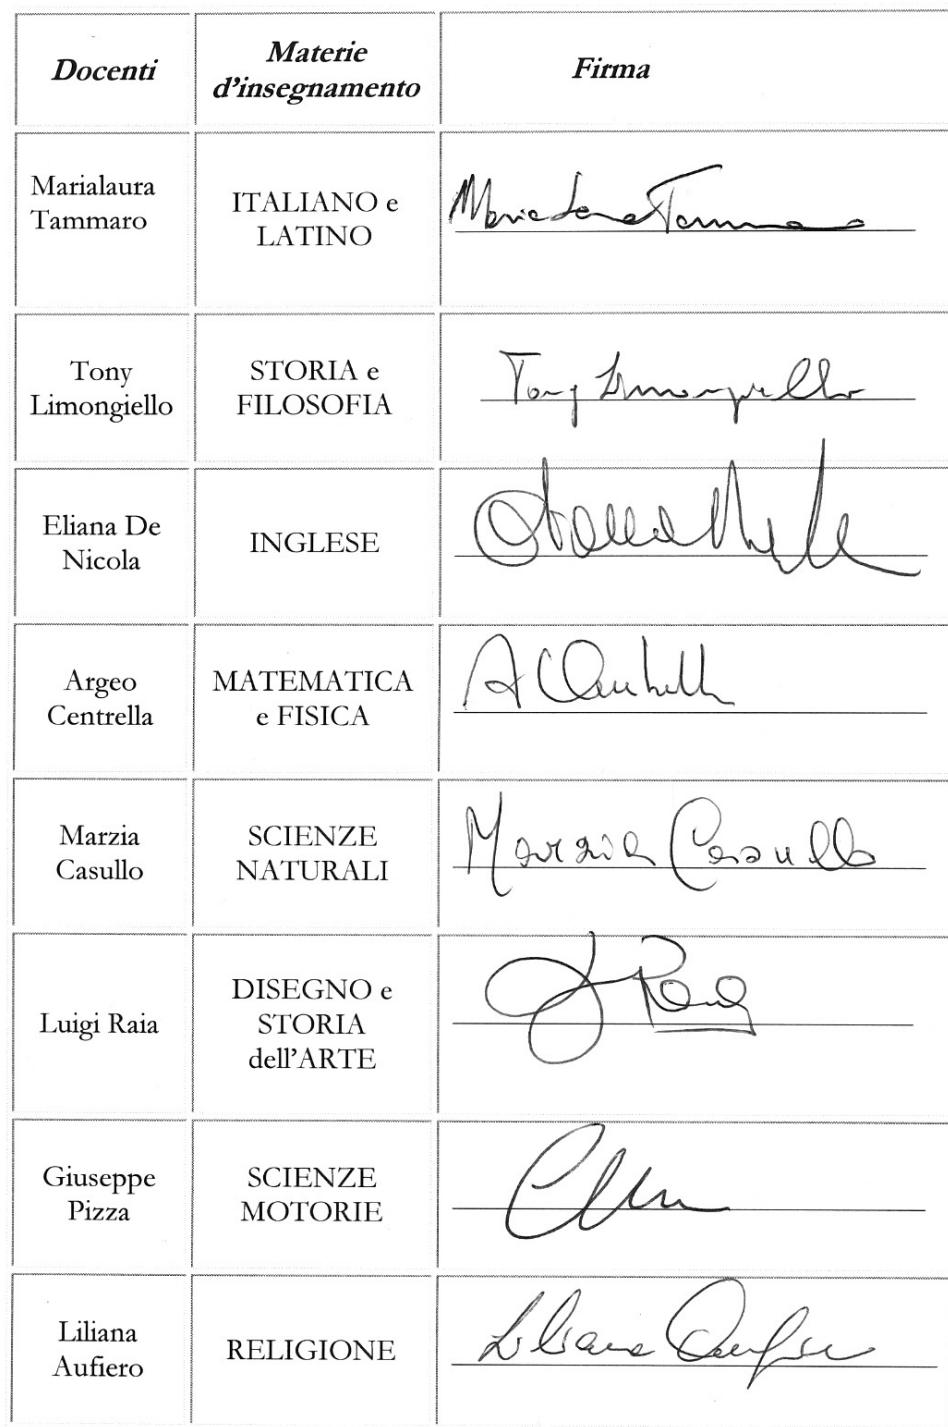 Docenti
Materie
d'insegnamento
Firma
Marialaura
Tammaro
ITALIANO e
LATINO
Tammaro
Tony
Limongiello
STORIA e
FILOSOFIA
Tony Limongiello
Eliana De
Nicola
INGLESE
Argeo
Centrella
MATEMATICA
e FISICA
A Centrella
Marzia
Casullo
SCIENZE
NATURALI
Marzia Casullo
Luigi Raia
DISEGNO e
STORIA
dell'ARTE
Raia
Giuseppe
Pizza
SCIENZE
MOTORIE
Liliana
Aufiero
RELIGIONE
Liliana Aufiero